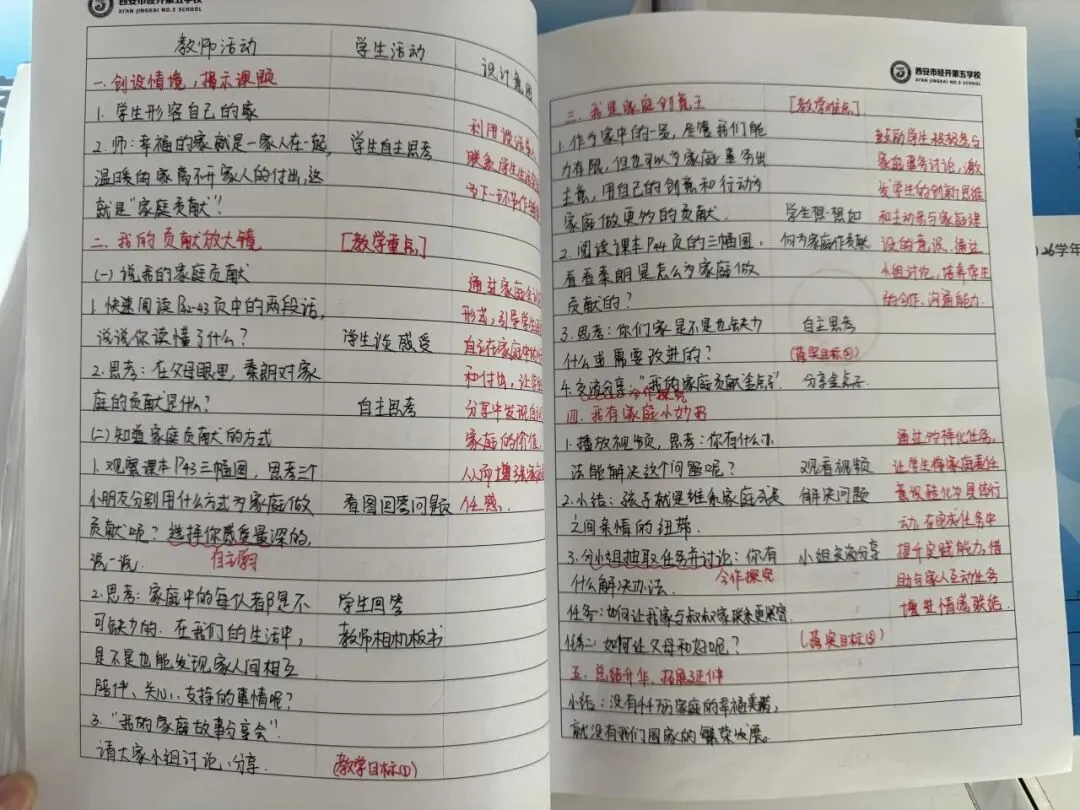 西安市经开第五学校
XI'AN JINGKAI NO.5 SCHOOL
教师活动
学生活动
设计意图
一. 创设情境，揭示课题
1. 学生形容自己的家
2. 师：幸福的家就是一家人在一起，
温暖的家离不开家人的付出，这
就是"家庭贡献"！
学生自主思考
利用谈话
联系学生生活
为下一环节作
二. 我的贡献放大镜
[教学重点]
(一) 说我的家庭贡献
1. 快速阅读P42-43页中的两段话，
说说你读懂了什么？
学生谈感受
2. 思考：在父母眼里，秦朗对家
庭的贡献是什么？
自主思考
(二) 知道家庭贡献的方式
1. 观察课本P43三幅图，思考三个
小朋友分别用什么方式为家庭做
贡献呢？选择你感受最深的，
说一说.
自主学习
看图回答问题
通过家庭
形式，引导学生
自己在家庭中的
和付出，让学
分享中发现自
家庭的价值，
从而增强家庭
任感.
2. 思考：家庭中的每个人都是不
可缺少的. 在我们的生活中，
是不是也能发现家人间相互
陪伴、关心、支持的事情呢？
学生回答
教师相机板书
3. "我的家庭故事分享会"
请大家小组讨论、分享.
(教学目标①)
西安市经开第五学校
XI'AN JINGKAI NO.5 SCHOOL
三. 我是家庭创意王
[教学难点]
1. 作为家中的一员，尽管我们能
力有限，但也可以为家庭事务出
主意，用自己的创意和行动为
家庭做更多的贡献.
学生想一想如
何为家庭作贡献
鼓励学生积极参与
家庭事务讨论，激
发学生的创新思维
和主动参与家庭建
设的意识，通过
小组讨论，培养学生
的合作、沟通能力.
2. 阅读课本P44页的三幅图，
看看秦朗是怎么为家庭做
贡献的？
3. 思考：你们家是不是也缺少
什么或需要改进的？
自主思考
(落实目标②)
4. 交流分享："我的家庭贡献金点子"
分享金点子
合作探究
四. 我有家庭小妙招
1. 播放视频，思考：你有什么办
法能解决这个问题呢？
观看视频
解决问题
2. 小结：孩子就是维系家庭成员
之间亲情的纽带.
3. 分小组抽取任务并讨论：你有
什么解决办法.
合作探究
小组交流分享
任务一：如何让我家与叔叔家联系更紧密
任务二：如何让父母和好呢？
(落实目标③)
通过多样化任务，
让学生将家庭责任
意识转化为具体行
动，在完成任务中
提升实践能力，借
助与家人互动任务
增进情感联结.
五. 总结升华，拓展延伸
小结：没有千千万万家庭的幸福美满，
就没有我们国家的繁荣发展。
26学年